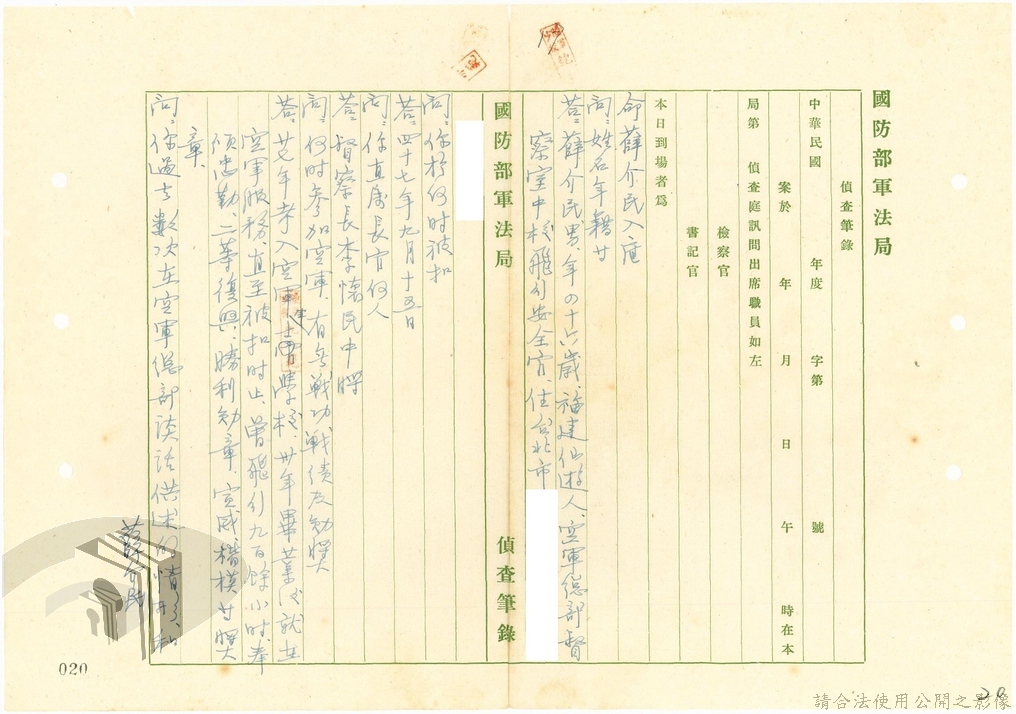 國防部軍法局
偵查筆錄
中華民國 年度 字第 號
案於 年 月 日 午 時在本
局第 偵查庭訊問出席職員如左
檢察官
書記官
本日到場者為
命薛介民入庭
問:姓名年籍廿
答:薛介民、男、年四十六歲、福建仙遊人、空軍總部督
察室中校飛行安全官、住台北市
國防部軍法局 偵查筆錄
問:你於何時被扣
答:四十七年九月十五日
問:你直屬長官何人
答:督察長李懷民中將
問:何時參加空軍、有無戰功戰績及勛獎
答:廿七年考入空軍軍官學校、卅年畢業後就在
空軍服務、直至被扣時止、曾飛行九百餘小時、奉
頒忠勤、二等復興、勝利勛章、宣威楷模廿獎
章、
問:你過去數次在空軍總部談話供述的情形
薛介民
020
20
請合法使用公開之影像